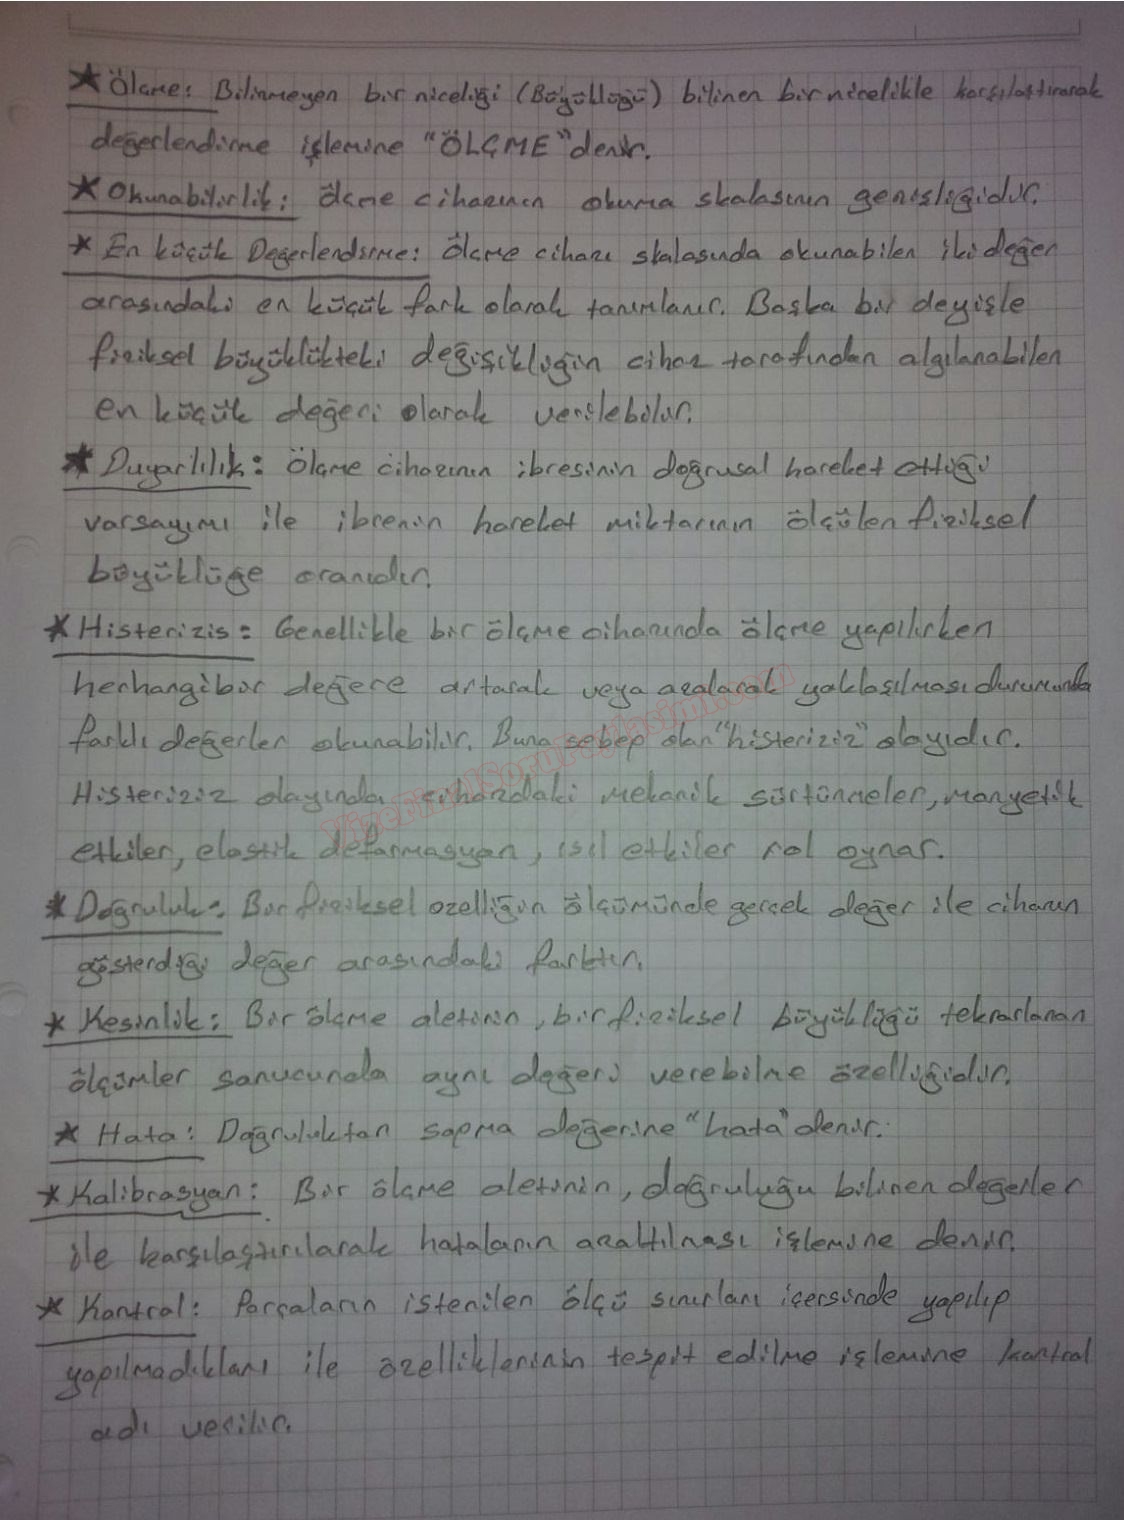 ★ Ölçme: Bilinmeyen bir niceliği (Büyüklüğü) bilinen bir nicelikle karşılaştırarak
değerlendirme işlemine "ÖLÇME" denir.
★ Okunabilirlik: Ölçme cihazının okuma skalasının genişliğidir.
★ En küçük Değerlendirme: Ölçme cihazı skalasında okunabilen iki değer
arasındaki en küçük fark olarak tanımlanır. Başka bir deyişle
fiziksel büyüklükteki değişikliğin cihaz tarafından algılanabilen
en küçük değeri olarak verilebilir.
★ Duyarlılık: Ölçme cihazının ibresinin doğrusal hareket ettiği
varsayımı ile ibrenin hareket miktarının ölçülen fiziksel
büyüklüğe oranıdır.
★ Histerizis: Genellikle bir ölçme cihazında ölçme yapılırken
herhangibir değere artarak veya azalarak yaklaşılması durumunda
farklı değerler okunabilir. Buna sebep olan "histeriziz" olayıdır.
Histeriziz olayında cihazdaki mekanik sürtünmeler, manyetik
etkiler, elastik deformasyon, ısıl etkiler rol oynar.
VizeFinalSoruPaylasimi.com
★ Doğruluk: Bir fiziksel özelliğin ölçümünde gerçek değer ile cihazın
gösterdiği değer arasındaki farktır.
★ Kesinlik: Bir ölçme aletinin, bir fiziksel büyüklüğü tekrarlanan
ölçümler sonucunda aynı değeri verebilme özelliğidir.
★ Hata: Doğruluktan sapma değerine "hata" denir.
★ Kalibrasyon: Bir ölçme aletinin, doğruluğu bilinen değerler
ile karşılaştırılarak hataların azaltılması işlemine denir.
★ Kontrol: Parçaların istenilen ölçü sınırları içersinde yapılıp
yapılmadıkları ile özelliklerinin tespit edilme işlemine kontrol
adı verilir.